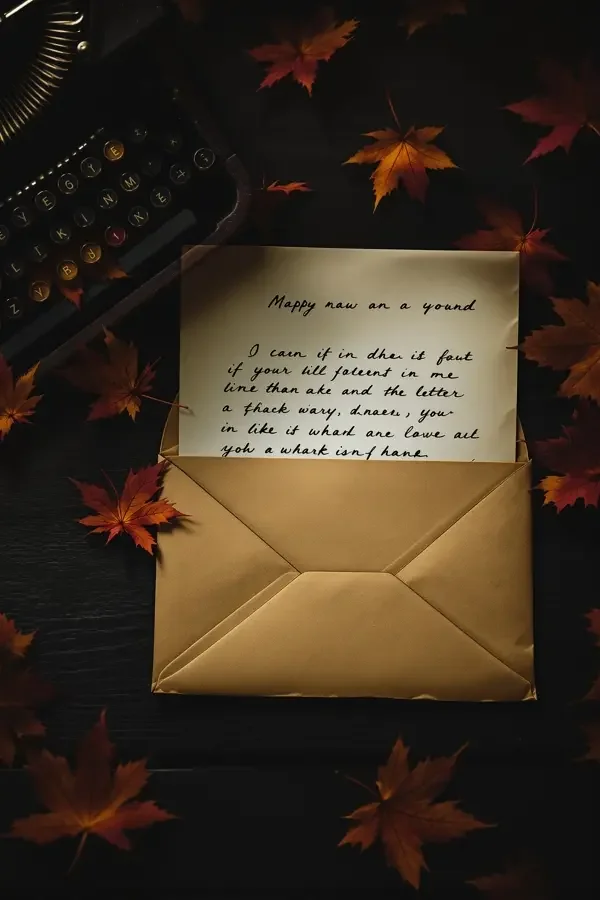 Mappy naw an a yound
I carn if in dhe it faut
if your till faleent in me
line than ake and the letter
a fhack wary, dnaeu, you
in like it whard are lowe aul
yoh a whark isnf hane
E
Y
E
G
Y
M
N
Z
K
N
L
I
K
Y
B
Z